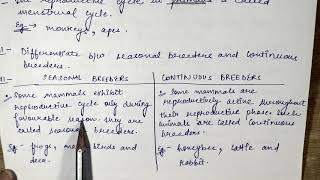 The reproductive cycle in primates is called
menstrual cycle.
Eg → monkeys, apes.
11- Differentiate b/w seasonal breeders and continuous
breeders.
SEASONAL BREEDERS
• Some mammals exhibit
reproductive cycle only during
favourable season. They are
called seasonal breeders.
Eg- frogs, birds and
deer.
CONTINUOUS BREEDERS
• Some mammals are
reproductively active throughout
their reproductive phase. Such
animals are called continuous
breeders.
Eg- honeybee, cattle and
rabbit.